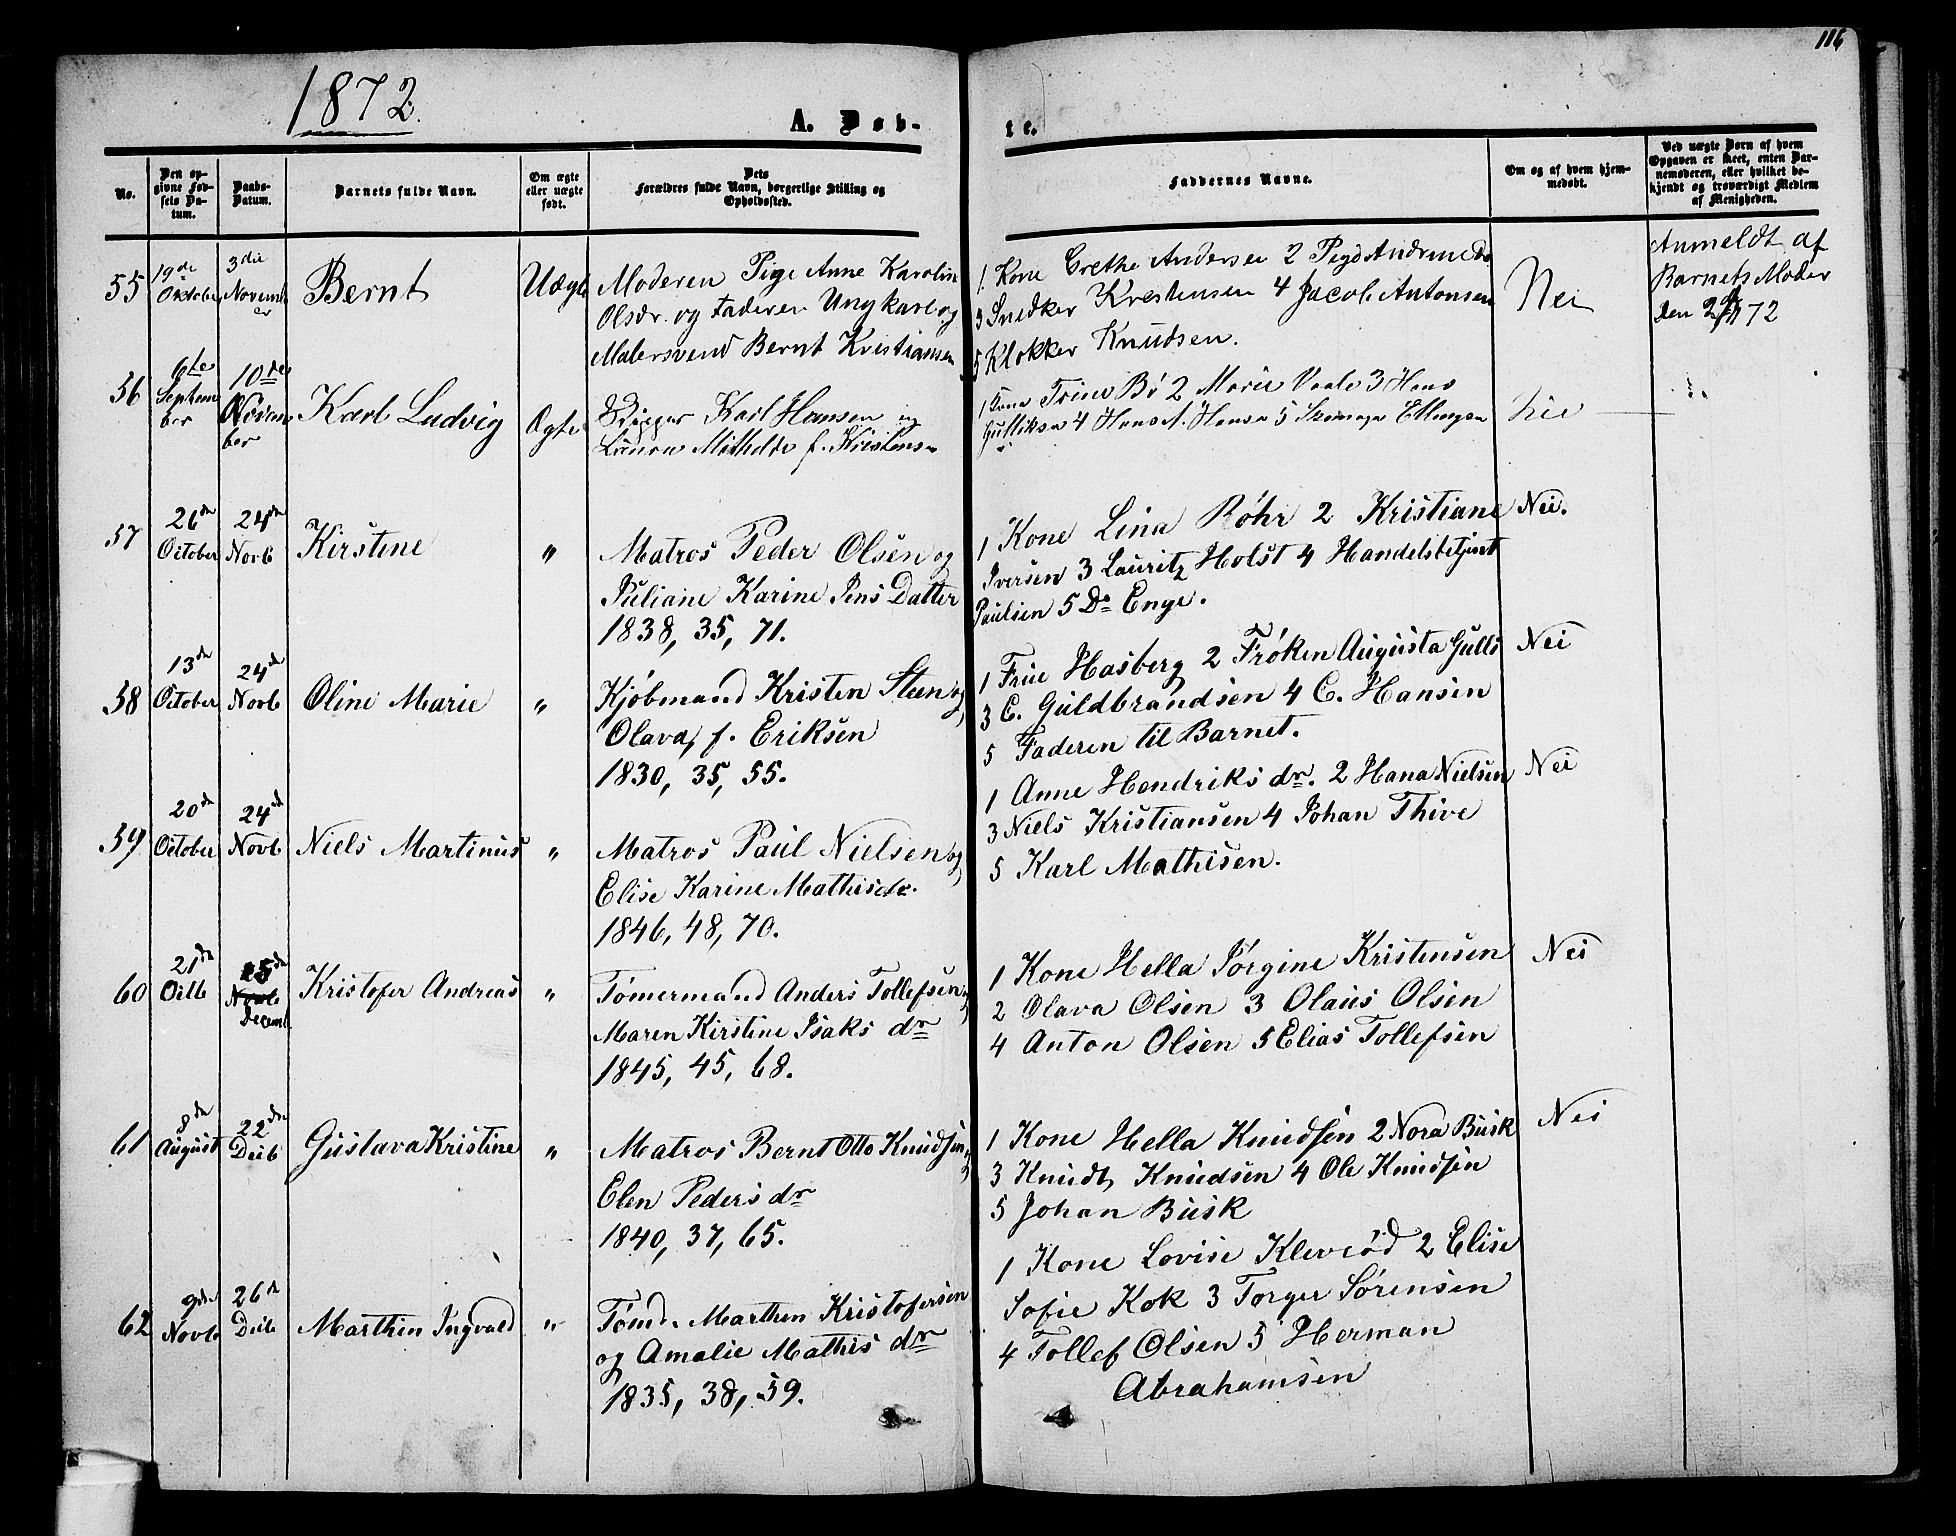 116
1872.
A. Døb-
te.
No.
Den op-
givne Fød-
sels Da-
tum.
Daabs-
Datum.
Barnets fulde Navn.
Om ægte
eller uægte
født.
Dets
Forældres fulde Navn, borgerlige Stilling og
Opholdssted.
Faddernes Navne.
Om og af hvem hjem-
medøbt.
Ved uægte Børn af hvem
Opgaven er skeet, enten Bar-
nemoderen, eller hvilket be-
kjendt og troværdigt Medlem
af Menigheden.
55
19de
Oktober
3die
Novemb
er
Bernt
Uægte
Moderen Pige Anne Karolin
Olsdr. og Faderen Ungkarl og
Malersvend Bernt Kristiansen
1. Kone Grethe Andersen 2 Pige
3 Snedker Krestensen 4 Jacob Antonsen
5 Klokker Knudsen.
Nei
Anmeldt af
Barnets Moder
den 72
56
6te
Septem
ber
10de
Novem
ber
Karl Ludvig
Ægte
Rigger Karl Hansen og
Laura Mathilde f. Kristens
1 Kone Trine Bø 2 Marie Vaale 3 Hans
Gulliksen 4 Hans A. Hansen 5 Ellingsen
Nei
57
26de
October
24de
Novb
Kirstine
"
Matros Peder Olsen og
Juliane Karine Jens Datter
1838, 35, 71.
1 Kone Lina Røhr 2 Kristiane
Iversen 3 Lauritz Holst 4 Handelsbetjent
Paulsen 5 Do Enge.
Nei.
58
13de
October
24de
Novb
Oline Marie
"
Kjøbmand Kristen Steen og
Olava, f. Eriksen
1830, 35, 55.
1 Frue Hasberg 2 Frøken Augusta Gulls
3 C. Guldbrandsen 4 C. Hansen
5 Faderen til Barnet.
Nei
59
20de
October
24de
Novb
Niels Martinus
"
Matros Paul Nielsen og
Elise Karine Mathisdr.
1846, 48, 70.
1 Anne Hendriks dr. 2 Hana Nielsen
3 Niels Kristiansen 4 Johan Thive
5 Karl Mathisen.
Nei
60
21de
Octb
15de
Novb
Decemb
Kristofer Andreas
"
Tømermand Anders Tollefsen og
Maren Kirstine Isaks dr
1845, 45, 68.
1 Kone Hella Jørgine Kristensen
2 Olava Olsen 3 Olaus Olsen
4 Anton Olsen 5 Elias Tollefsen
Nei
61
8de
August
22de
Decb
Gustava Kristine
"
Matros Bernt Otto Knudsen og
Elen Peders dr
1840, 37, 65.
1 Kone Hella Knudsen 2 Nora Busk
3 Knudt Knudsen 4 Ole Knudsen
5 Johan Busk
Nei
62
9de
Novb
26de
Decb
Marthin Ingvald
"
Tømd. Marthin Kristofersen
og Amalie Mathis dr
1835, 38, 59.
1 Kone Lovise Kleveød 2 Elise
Sofie Kok 3 Torger Sørensen
4 Tollef Olsen 5 Herman
Abrahamsen